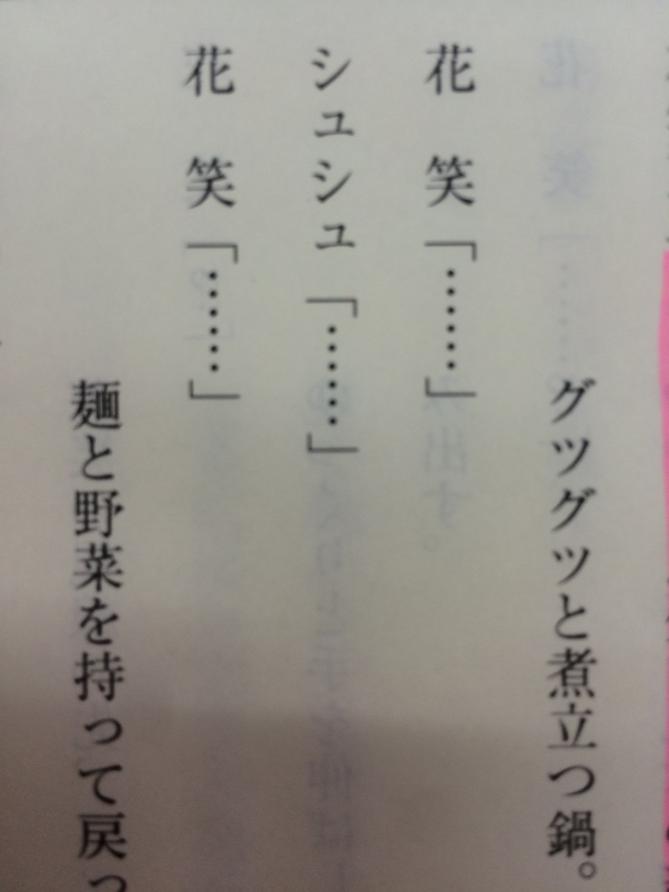 グツグツと煮立つ鍋。
花　笑「……」
シュシュ「……」
花　笑「……」
麺と野菜を持って戻っ